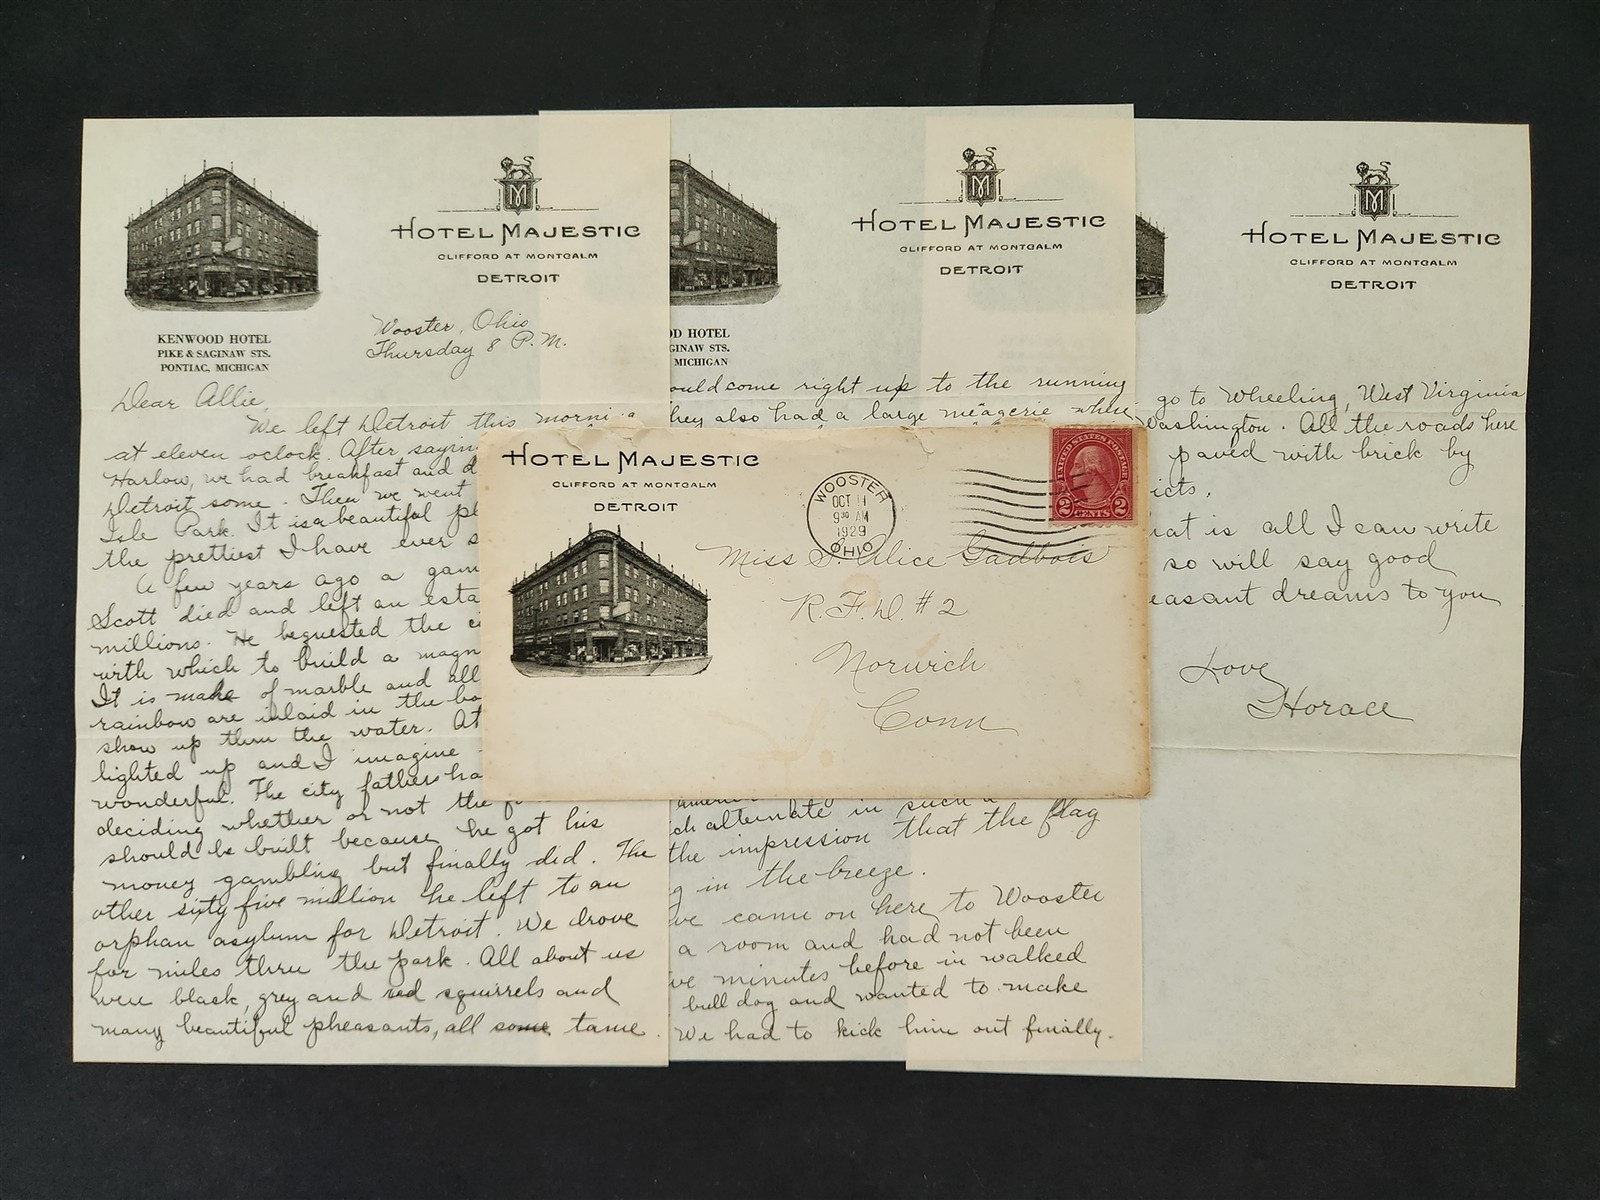 HOTEL MAJESTIC
CLIFFORD AT MONTCALM
DETROIT
KENWOOD HOTEL
PIKE & SAGINAW STS.
PONTIAC, MICHIGAN
Wooster, Ohio
Thursday 8 P.M.
Dear Allie,
We left Detroit this
at eleven oclock. After
Harlow, we had breakfast and
Detroit some. Then we went
Isle Park. It is a beautiful
the prettiest I have ever
A few years ago a
Scott died and left an
millions. He bequested the
with which to build a
It is made of marble and all
rainbow are inlaid in the
show up thru the water. At
lighted up and I imagine
wonderful. The city fathers
deciding whether or not the
should be built because he got his
money gambling but finally did. The
other sixty five million he left to an
orphan asylum for Detroit. We drove
for miles thru the park. All about us
were black, grey and red squirrels and
many beautiful pheasants, all some tame.
HOTEL MAJESTIC
CLIFFORD AT MONTCALM
DETROIT
OD HOTEL
GINAW STS.
MICHIGAN
ould come right up to the running
they also had a large meagerie where
ch alternate in such a
the impression that the flag
g in the breeze.
we came on here to Wooster
a room and had not been
ve minutes before in walked
bull dog and wanted to make
We had to kick him out finally.
HOTEL MAJESTIC
CLIFFORD AT MONTCALM
DETROIT
go to Wheeling, West Virginia
Washington. All the roads here
paved with brick by
icts.
hat is all I can write
so will say good
easant dreams to you
Love
Horace
HOTEL MAJESTIC
CLIFFORD AT MONTCALM
DETROIT
WOOSTER
OCT 11
9 30 AM
1929
OHIO
UNITED STATES POSTAGE
2 CENTS 2
Miss S. Alice Gadbois
R.F.D. #2
Norwich
Conn